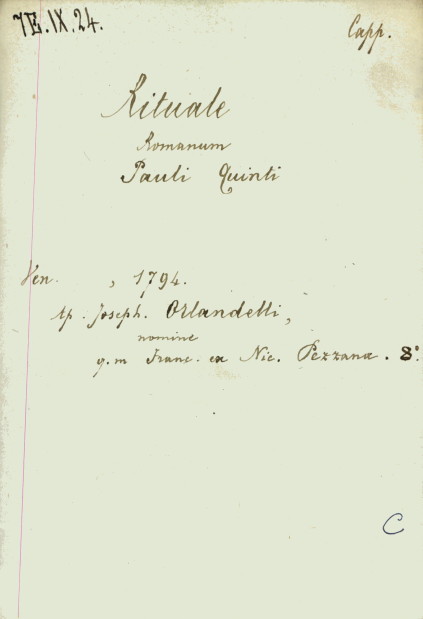 7E.IX.24.
Capp.
Rituale
Romanum
Pauli Quinti
Ven. , 1794.
ap. Joseph. Orlandelli,
nomine
q.m Franc. ex Nic. Pezzana. 8°.
C